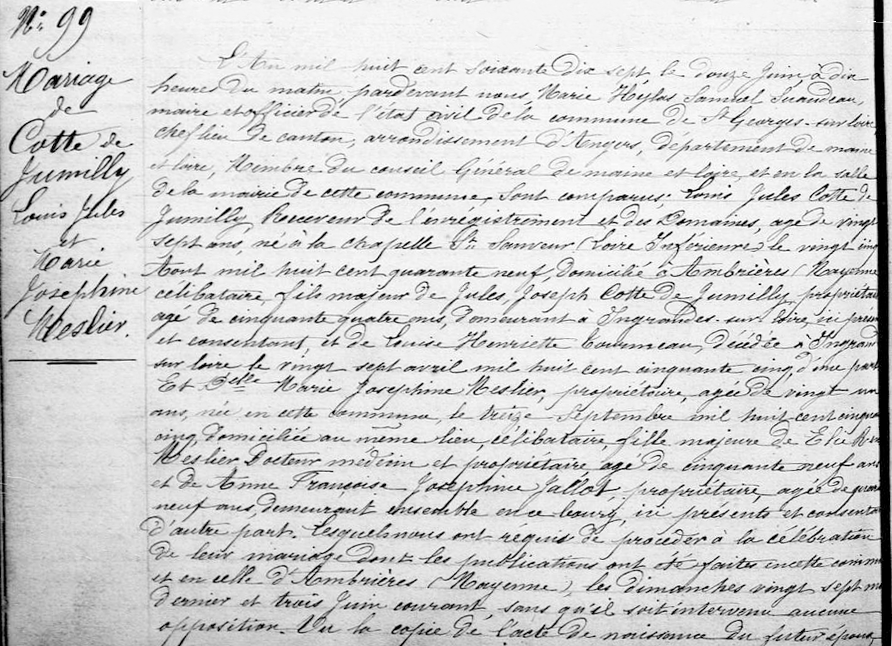 N° 99
Mariage
de
Cotte de
Jumilly
Louis Jules
et
Marie
Joséphine
Meslier.
L'An mil huit cent soixante dix sept, le douze Juin à dix
heures du matin, pardevant nous Marie Hylas Samuel Suaudeau,
maire et officier de l'état civil de la commune de St Georges-sur-Loire,
chef lieu de canton, arrondissement d'Angers, département de maine
et loire, Membre du conseil Général de maine et loire, et en la salle
de la mairie de cette commune, Sont comparus; Louis Jules Cotte de
Jumilly, Receveur de l'enregistrement et des Domaines, agé de vingt
sept ans, né à la chapelle St Sauveur (Loire Inférieure) le vingt cinq
Aout mil huit cent quarante neuf, domicilié à Ambrières (Mayenne
célibataire, fils majeur de Jules, Joseph Cotte de Jumilly, propriétaire
agé de cinquante quatre ans, demeurant à Ingrandes-sur loire, ici présen
et consentant, et de Louise Henriette décédée à Ingrand
sur loire le vingt sept avril mil huit cent cinquante cinq, d'une part
Et Delle Marie Joséphine Meslier, propriétaire, agée de vingt un
ans, née en cette commune, le treize Septembre mil huit cent cinquan
cinq, domiciliée au même lieu, célibataire, fille majeure de
Meslier Docteur médecin et propriétaire, agé de cinquante neuf ans
et de Anne Françoise Joséphine Jallot, propriétaire, agée de quaran
neuf ans, demeurant ensemble en ce bourg, ici présents et consentan
d'autre part. Lesquels nous ont réquis de procéder à la célébration
de leur mariage dont les publications ont été faites en cette comm
et en celle d'Ambrières (Mayenne), les dimanches vingt sept m
dernier et trois Juin courant, sans qu'il soit intervenu aucune
opposition. Vu la copie de l'acte de naissance du futur époux,